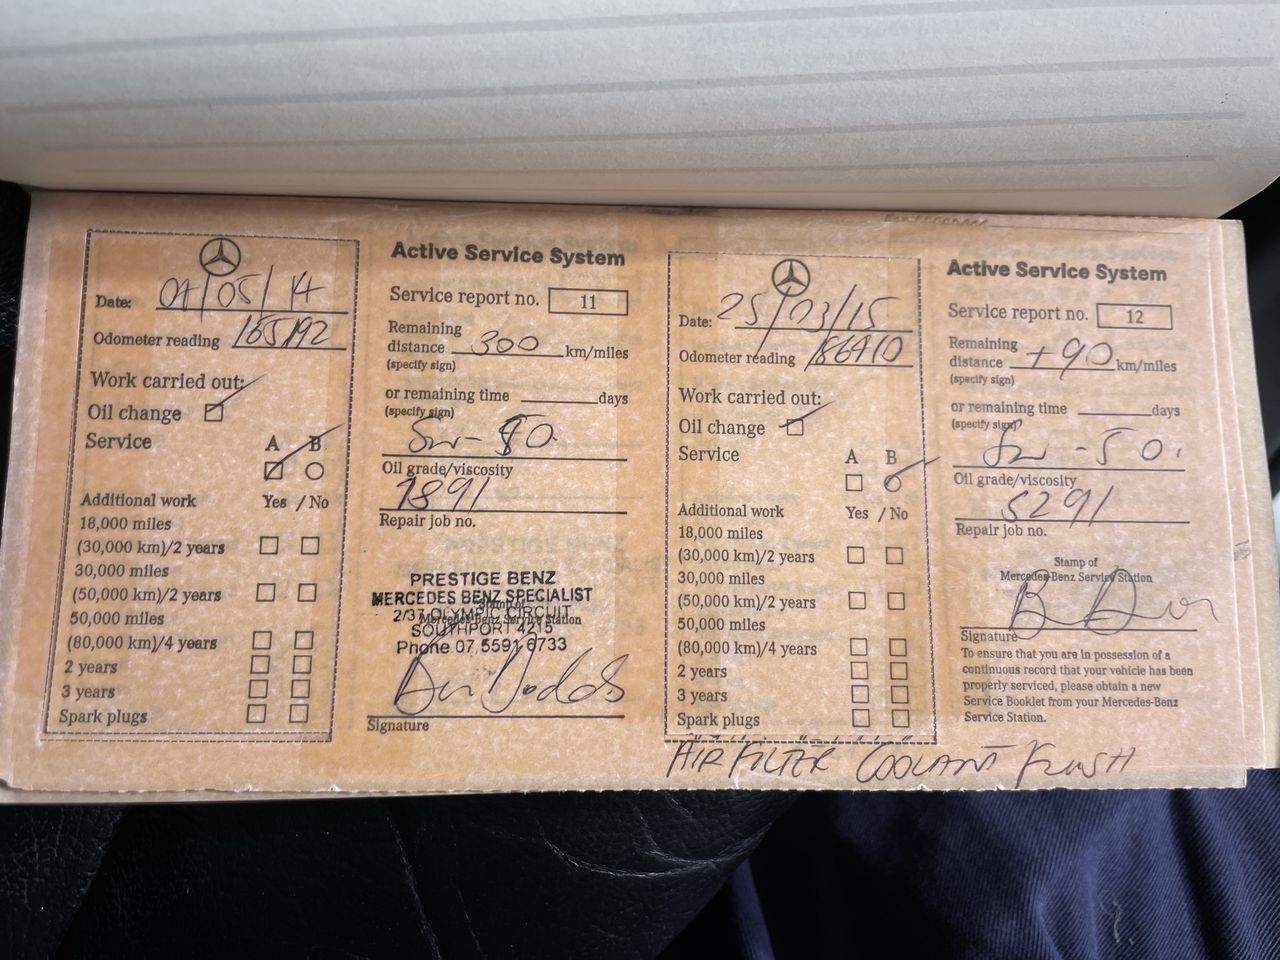 Date: 07/05/14
Odometer reading 165192
Work carried out:
Oil change
Service A B
Additional work Yes / No
18,000 miles
(30,000 km)/2 years
30,000 miles
(50,000 km)/2 years
50,000 miles
(80,000 km)/4 years
2 years
3 years
Spark plugs
Active Service System
Service report no. 11
Remaining
distance 300 km/miles
(specify sign)
or remaining time days
(specify sign)
Oil grade/viscosity
1891
Repair job no.
PRESTIGE BENZ
MERCEDES BENZ SPECIALIST
Stamp of
2/37 OLYMPIC CIRCUIT
Mercedes-Benz Service Station
SOUTHPORT 4215
Phone 07 5591 6733
Signature
Date: 25/03/15
Odometer reading 186410
Work carried out:
Oil change
Service A B
Additional work Yes / No
18,000 miles
(30,000 km)/2 years
30,000 miles
(50,000 km)/2 years
50,000 miles
(80,000 km)/4 years
2 years
3 years
Spark plugs
AIR FILTER COOLANT FLUSH
Active Service System
Service report no. 12
Remaining
distance +90 km/miles
(specify sign)
or remaining time days
(specify sign)
5w-50.
Oil grade/viscosity
5291
Repair job no.
Stamp of
Mercedes-Benz Service Station
Signature
To ensure that you are in possession of a
continuous record that your vehicle has been
properly serviced, please obtain a new
Service Booklet from your Mercedes-Benz
Service Station.